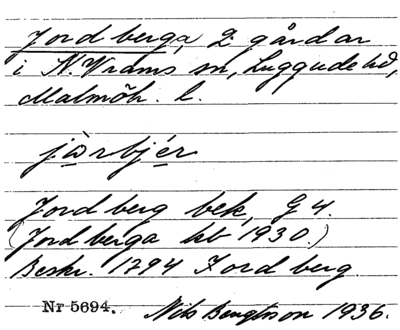 Jordberga, 2 gårdar
i N. Vrams sn, Luggude hd,
Malmöh. l.
jo̱rbjér
Jordberg bek, G 4.
(Jordberga kb 1930.)
Beskr. 1794 Jordberg.
Nr 5694. Nils Bengtsson 1936.